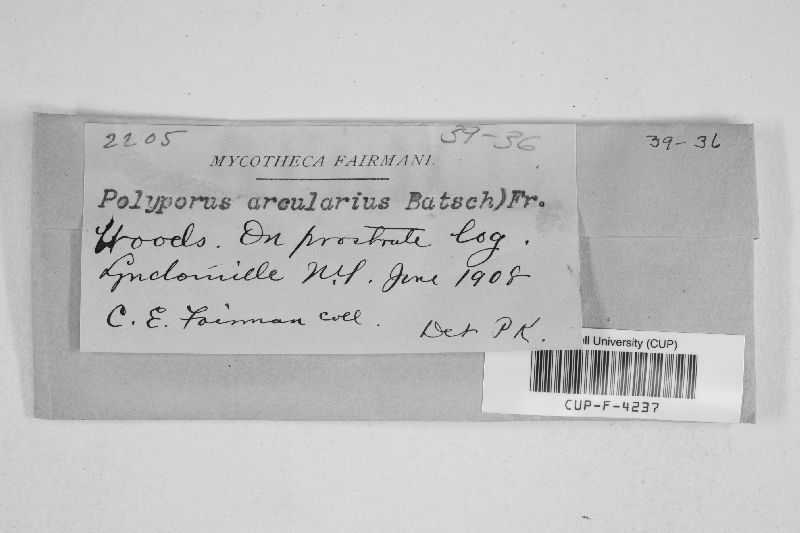 2205
39-36
39-36
MYCOTHECA FAIRMANI.
Polyporus arcularius Batsch)Fr.
Woods. On prostrate log.
Lyndonville N.Y. June 1908
C. E. Fairman coll.
Det P K.
ll University (CUP)
CUP-F-4237